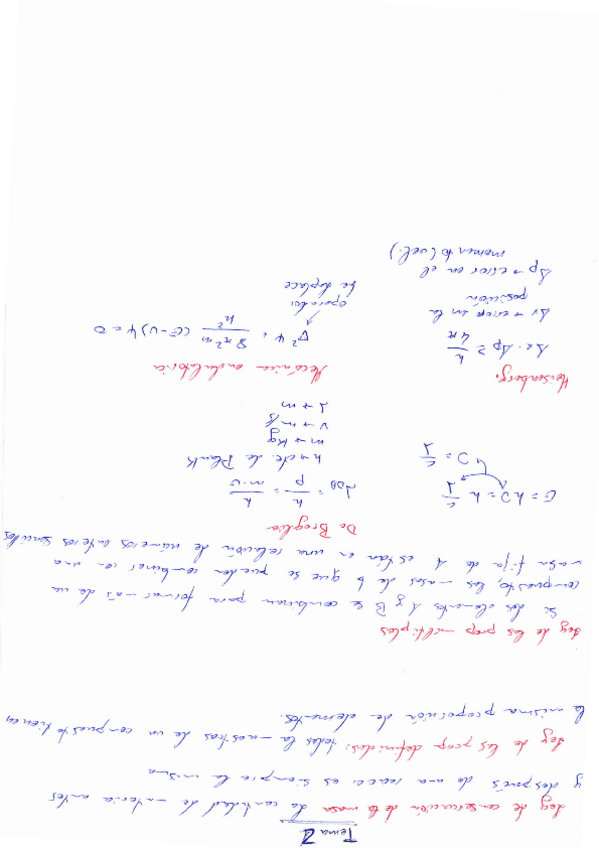 Tema 1
Ley de conservación de la masa la cantidad de materia antes
y después de una reacci es siempre la misma
Ley de las prop definidas: todas la muestras de un compuesto tienen
la misma proporción de elementos.
Ley de las prop múltiples
Si dos elementos A y B se combinan para formar más de un
compuesto, las masas de b que se pueden combinar con una
masa fija de A están en una relación de números enteros sencillos
De Broglie
E = h υ = h c/λ
υ = c/λ
λDB = h/p = h/m·v
h → cte. de Plank
m → Kg
v → m/s
λ → m
Heisenberg.
Δx · Δp ≥ h/4π
Δx → error en la
posición
Δp → error en el
momento (vel.)
Mecánica ondulatoria
∇²ψ + 8π²m/h² (E-U)ψ = 0
operador
de laplace